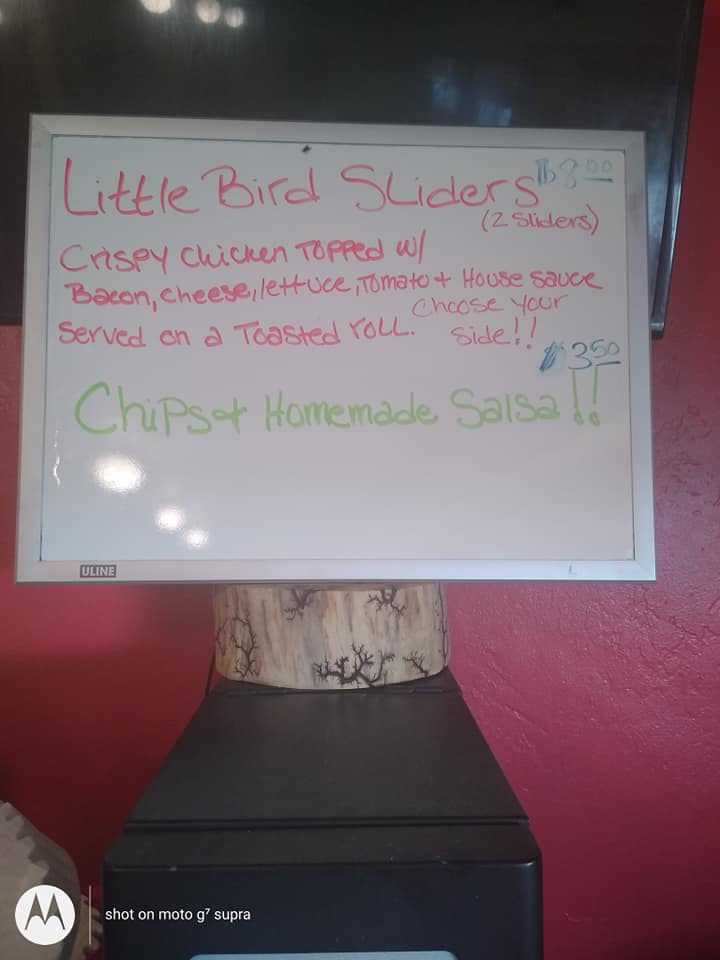 Little Bird Sliders $8.00
(2 Sliders)
Crispy Chicken Topped w/
Bacon, cheese, lettuce, Tomato + House sauce
Served on a Toasted roll. Choose your
side!!
$3.50
Chips + Homemade Salsa!!
ULINE
shot on moto g⁷ supra